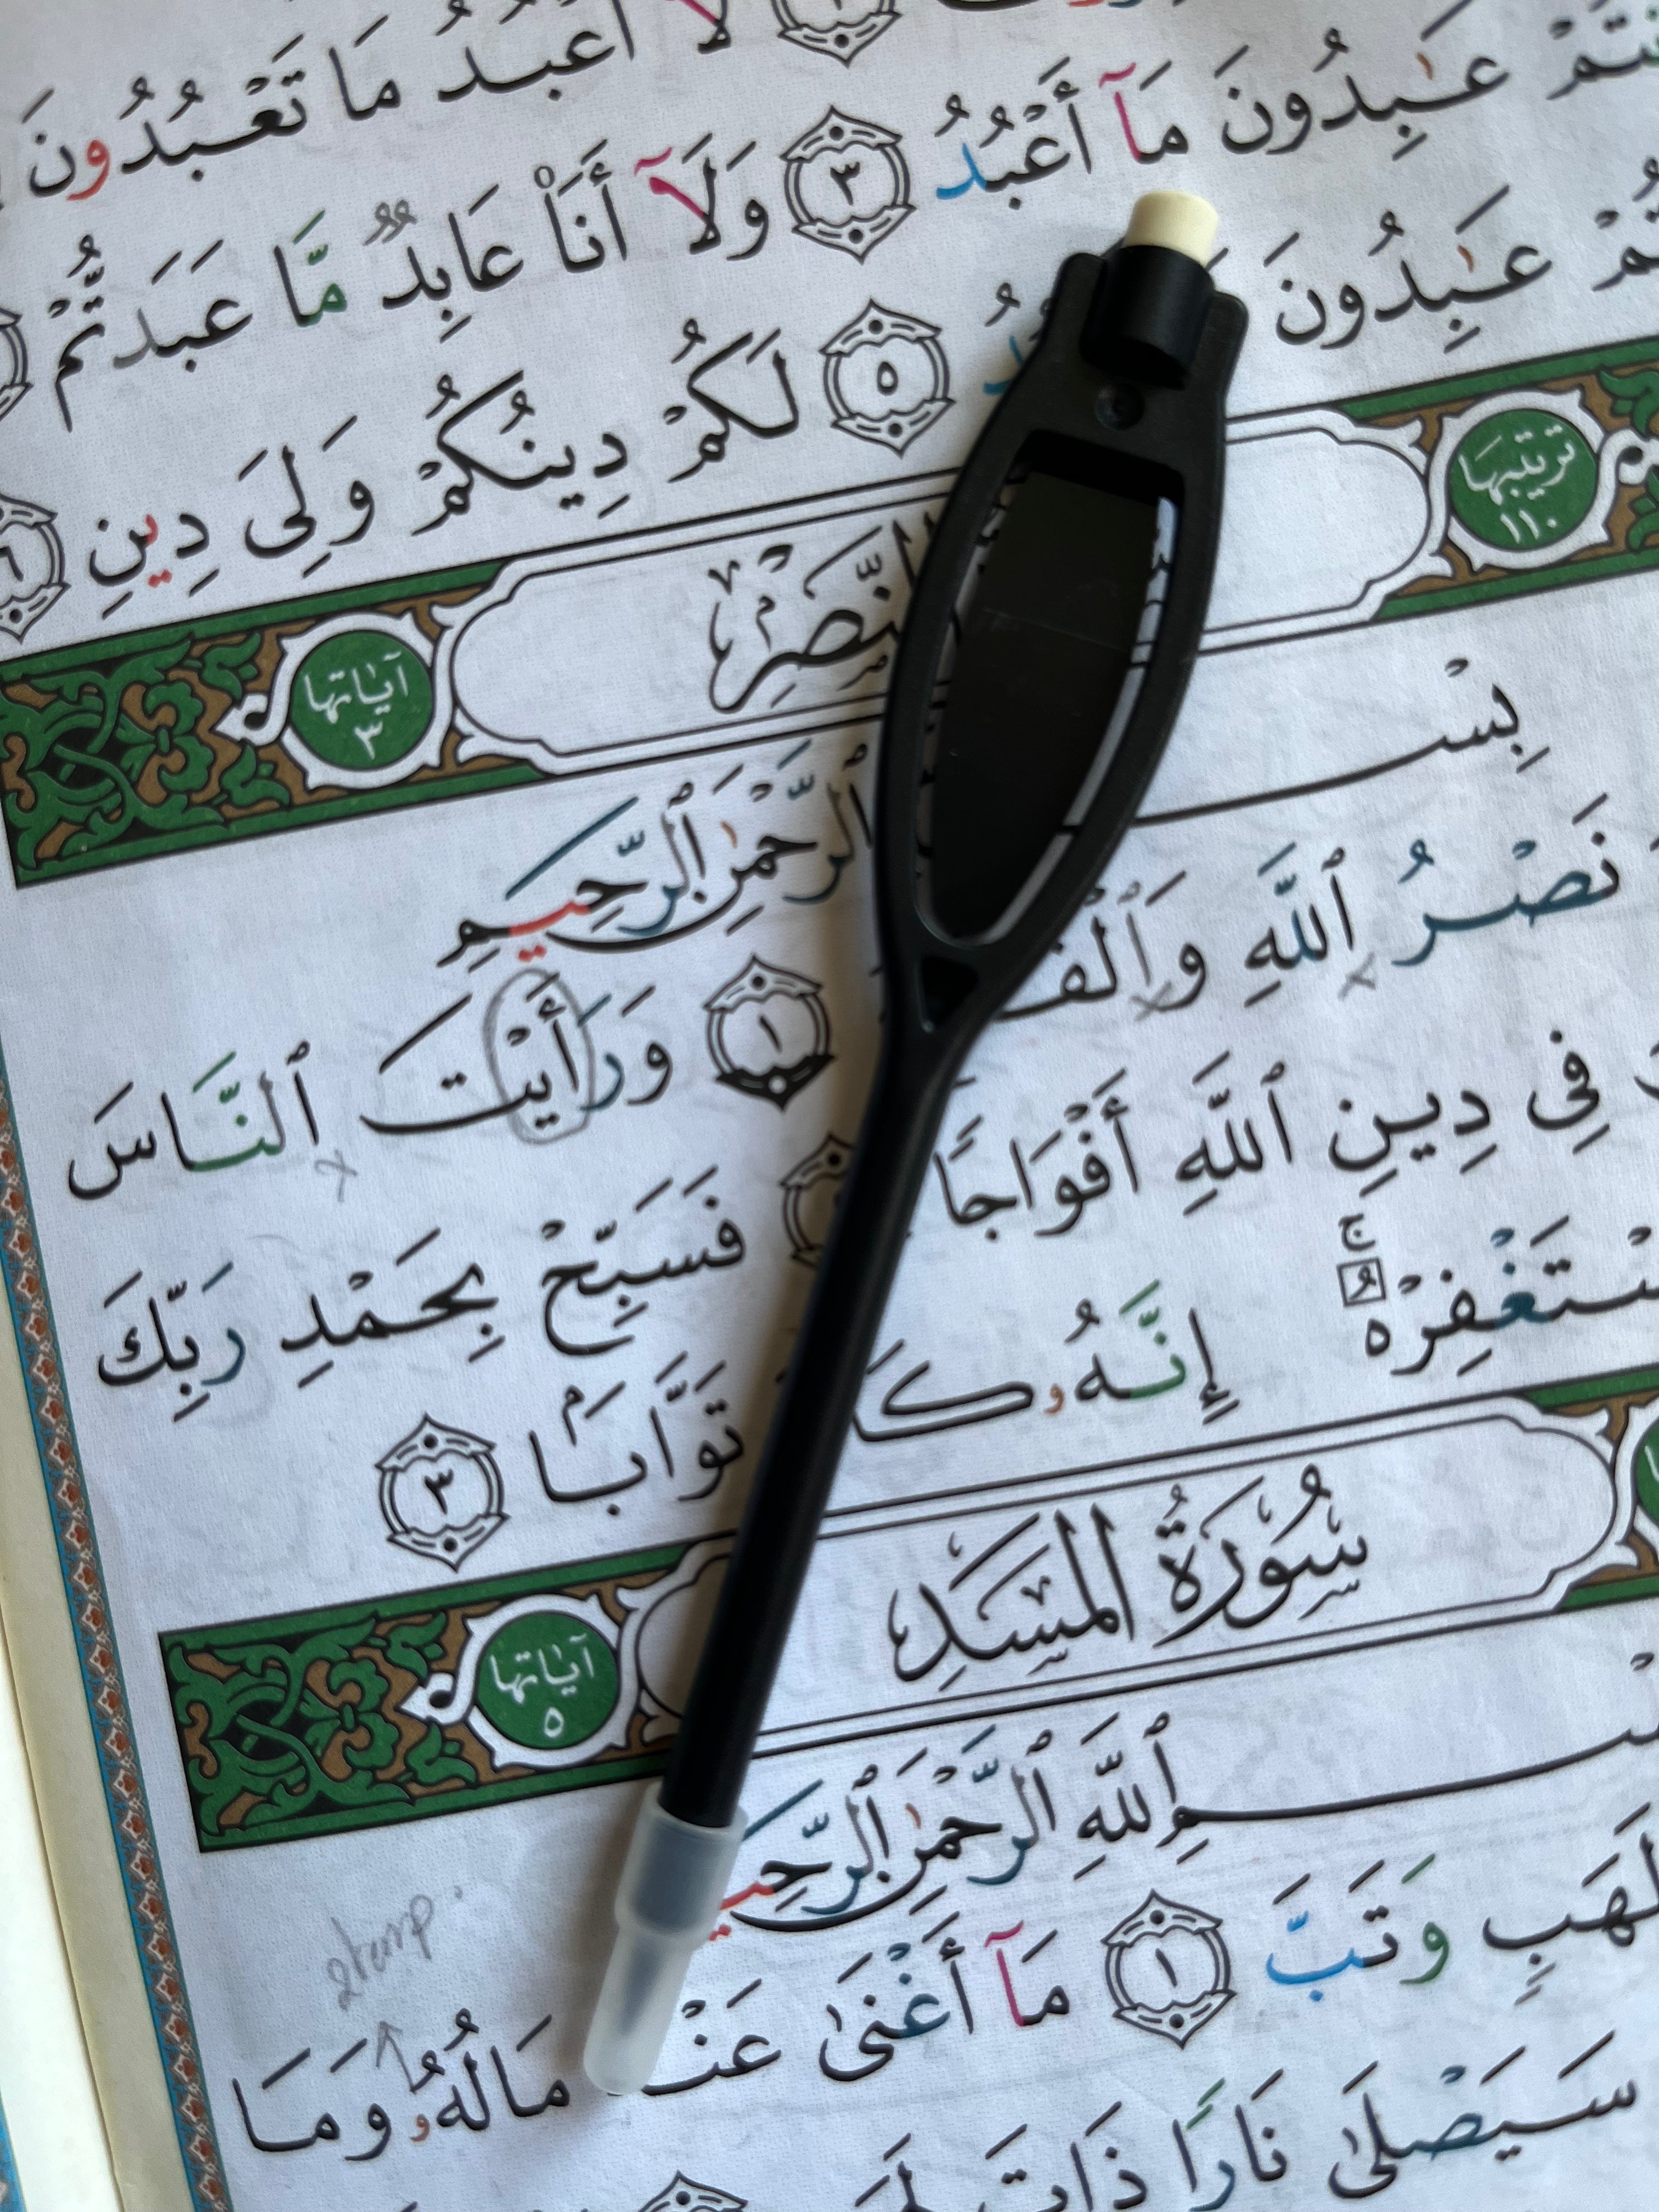 لَآ أَعْبُدُ مَا تَعْبُدُونَ
عَٰبِدُونَ مَآ أَعْبُدُ ٣ وَلَآ أَنَا۠ عَابِدٌ مَّا عَبَدتُّمْ
عَٰبِدُونَ ٥ لَكُمْ دِينُكُمْ وَلِىَ دِينِ ٦
ترتيبها ١١٠ النَّصْرِ آياتها ٣
بِسْ الرَّحْمَٰنِ ٱلرَّحِيمِ
نَصْرُ ٱللَّهِ وَٱلْفَ ١ وَرَأَيْتَ ٱلنَّاسَ
فِى دِينِ ٱللَّهِ أَفْوَاجًا فَسَبِّحْ بِحَمْدِ رَبِّكَ
سْتَغْفِرْهُ ۚ إِنَّهُۥ كَا تَوَّابًۢا ٣
سُورَةُ المَسَدِ آياتها ٥
ـمِ ٱللَّهِ ٱلرَّحْمَٰنِ ٱلرَّحِي
لَهَبٍ وَتَبَّ ١ مَآ أَغْنَىٰ عَنْ مَالُهُۥ وَمَا
سَيَصْلَىٰ نَارًا ذَاتَ لَ